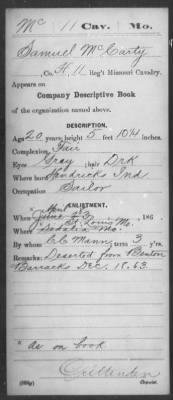 Mc 11 Cav. Mo.
Samuel McCarty
, Co. H, 11 Reg't Missouri Cavalry.
Appears on
Company Descriptive Book
of the organization named above.
DESCRIPTION.
Age 20 years; height 5 feet 10¼ inches.
Complexion Fair
Eyes Gray ; hair Drk
Where born Hendricks Ind
Occupation Sailor
ENLISTMENT.
When June 23 , 186 .
Where St. Louis Mo.
Sedalia Mo.
By whom Mann ; term 3 y'rs.
Remarks: Deserted from Benton
Barracks Dec. 18.63.
* as on book
Crittenden
Copyist.